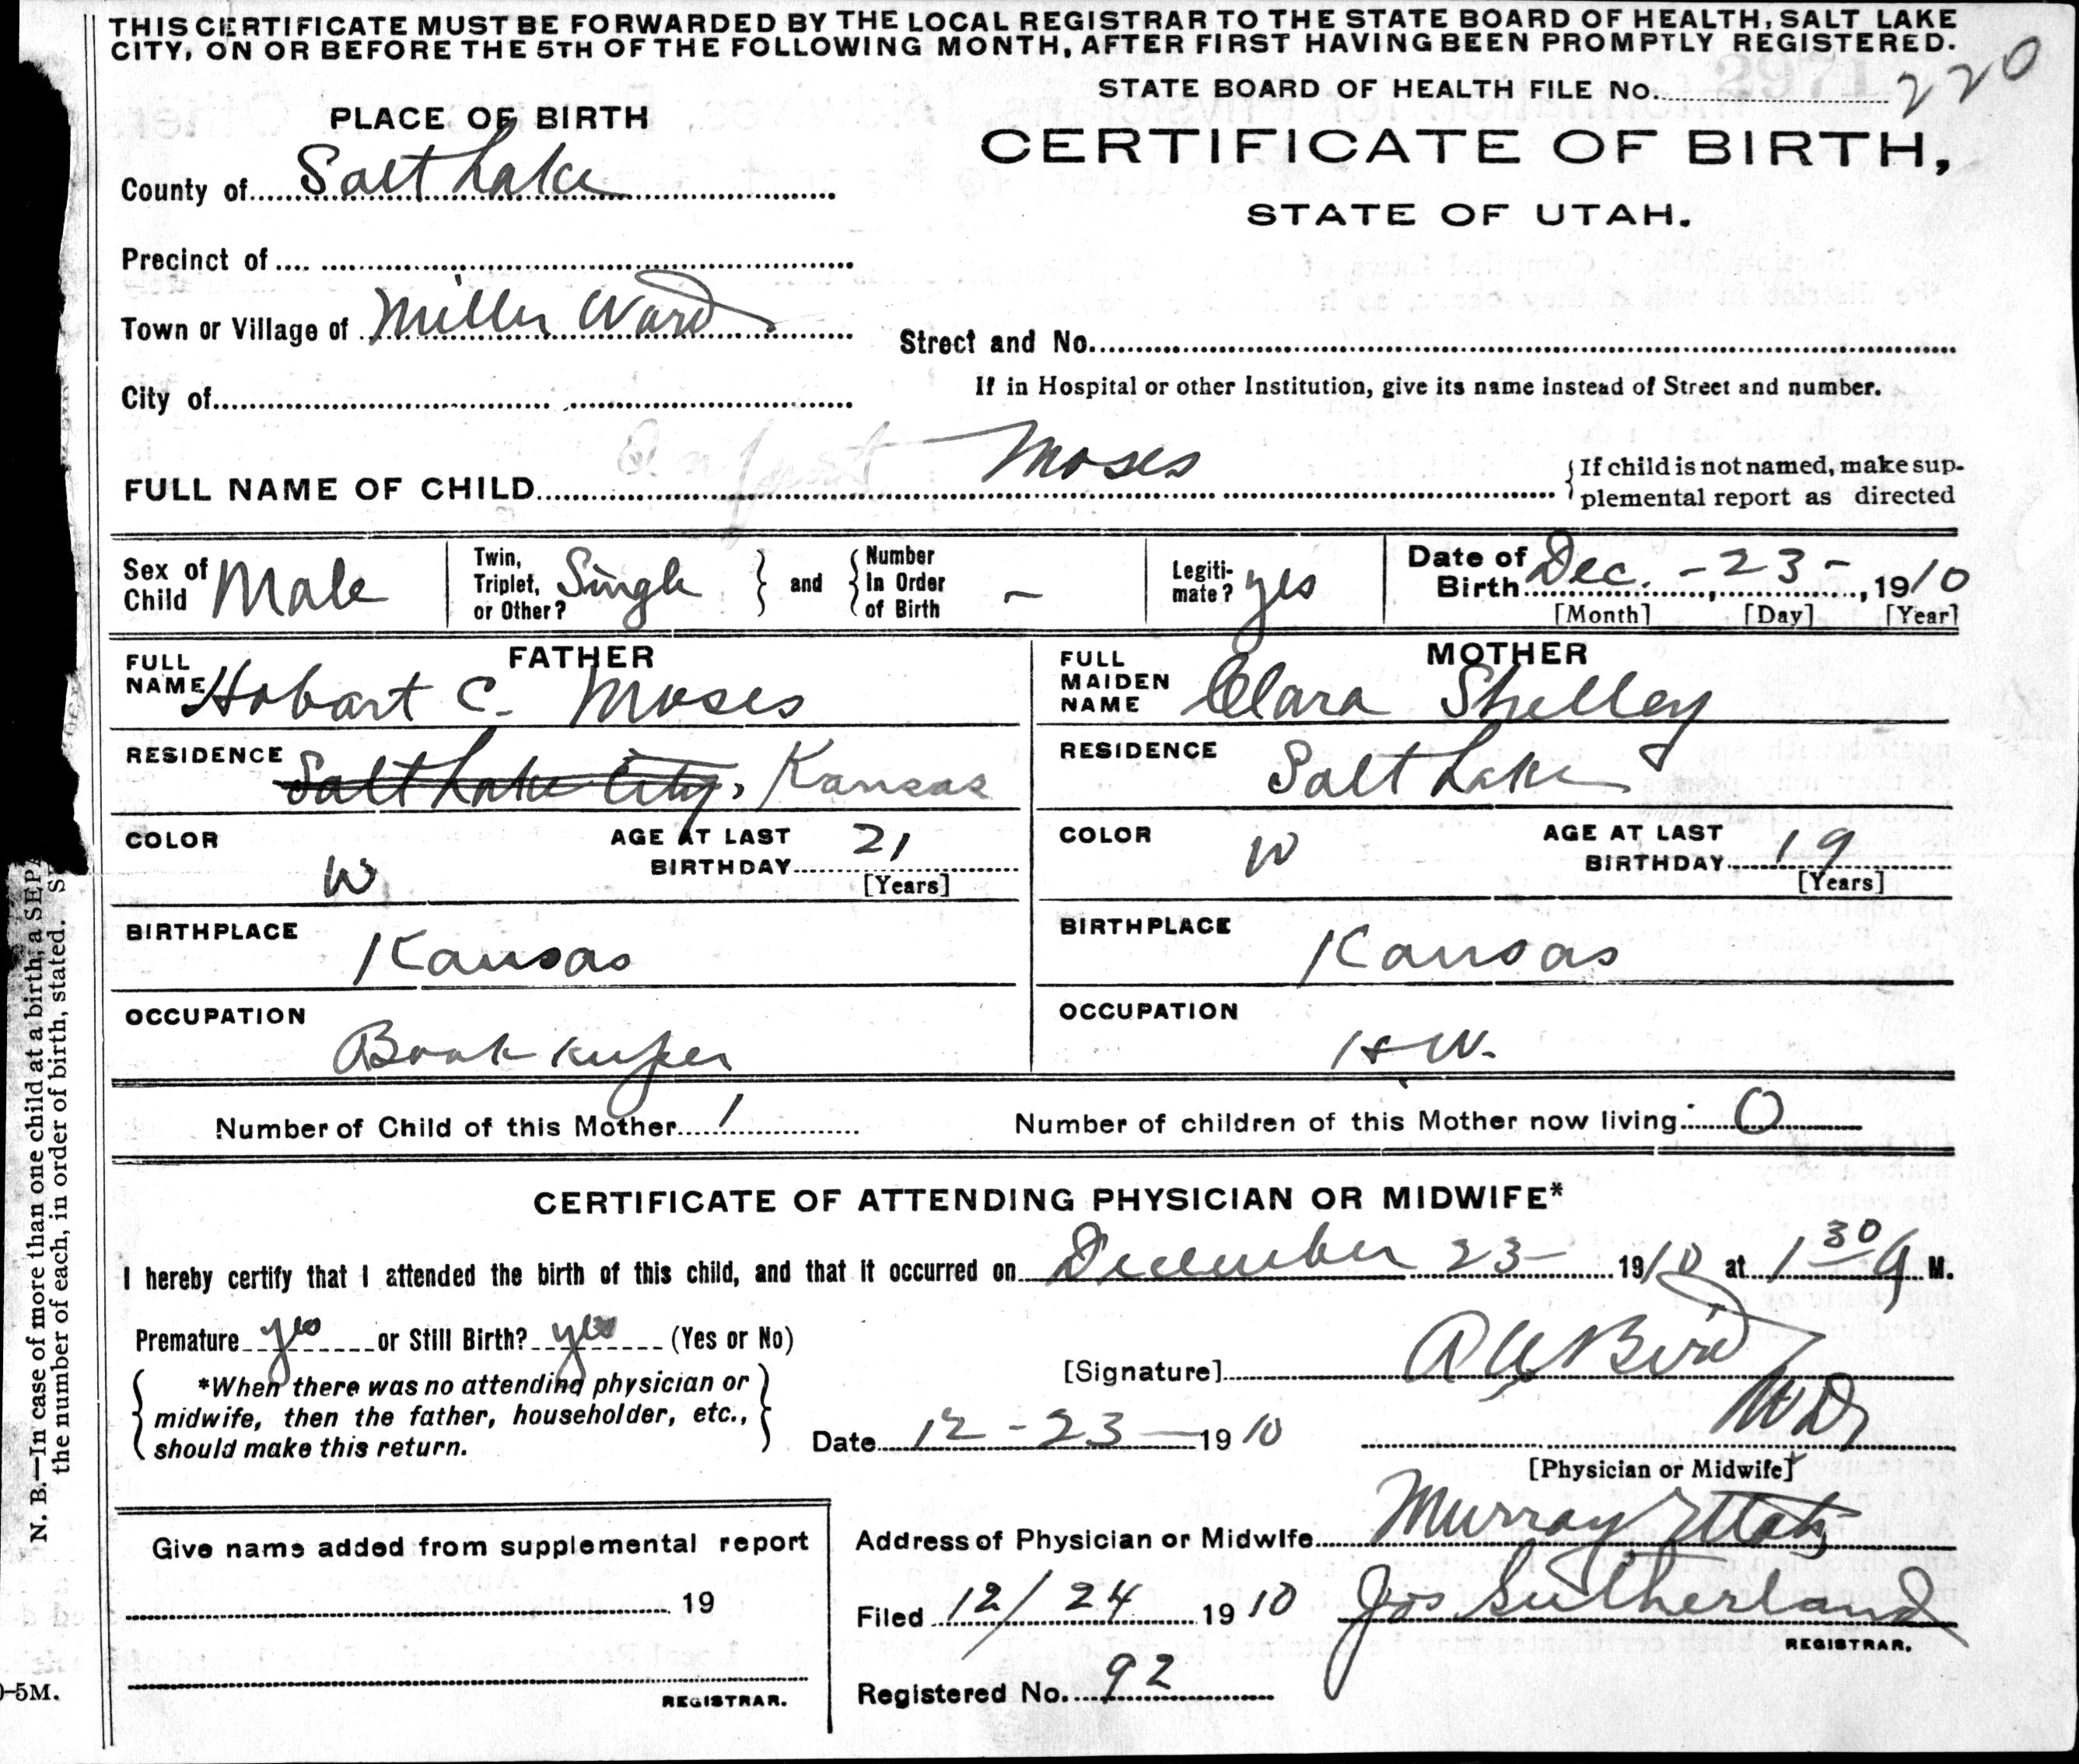 THIS CERTIFICATE MUST BE FORWARDED BY THE LOCAL REGISTRAR TO THE STATE BOARD OF HEALTH, SALT LAKE
CITY, ON OR BEFORE THE 5TH OF THE FOLLOWING MONTH, AFTER FIRST HAVING BEEN PROMPTLY REGISTERED.
STATE BOARD OF HEALTH FILE No. 220
PLACE OF BIRTH
CERTIFICATE OF BIRTH,
STATE OF UTAH.
County of Salt Lake
Precinct of
Town or Village of Miller Ward
Street and No.
City of
If in Hospital or other Institution, give its name instead of Street and number.
FULL NAME OF CHILD Infant Moses
If child is not named, make sup-
plemental report as directed
Sex of Child Male
Twin, Triplet, or Other? Single
and Number In Order of Birth –
Legiti-mate? yes
Date of Birth Dec. - 23 -, 1910
[Month] [Day] [Year]
FATHER
FULL NAME Hobart C. Moses
MOTHER
FULL MAIDEN NAME Clara Shelley
RESIDENCE Salt Lake City, Kansas
RESIDENCE Salt Lake
COLOR W
AGE AT LAST BIRTHDAY 21
[Years]
COLOR W
AGE AT LAST BIRTHDAY 19
[Years]
BIRTHPLACE Kansas
BIRTHPLACE Kansas
OCCUPATION Book keeper
OCCUPATION H W.
Number of Child of this Mother 1
Number of children of this Mother now living 0
CERTIFICATE OF ATTENDING PHYSICIAN OR MIDWIFE*
I hereby certify that I attended the birth of this child, and that it occurred on December 23 1910 at 1 30 A M.
Premature yes or Still Birth? yes (Yes or No)
[Signature] Bird
MD
*When there was no attending physician or
midwife, then the father, householder, etc.,
should make this return.
Date 12 - 23 1910
[Physician or Midwife]
Address of Physician or Midwife Murray Utah
Give name added from supplemental report
19
REGISTRAR.
Filed 12/24 1910 Jos Sutherland
REGISTRAR.
Registered No. 92
N. B.—In case of more than one child at a birth, a SEPA
the number of each, in order of birth, stated.
-5M.